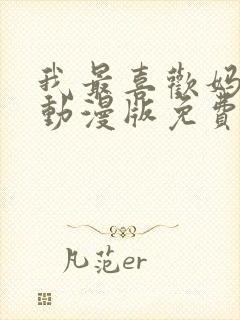 我最喜歡媽
動漫版免費
凡范er